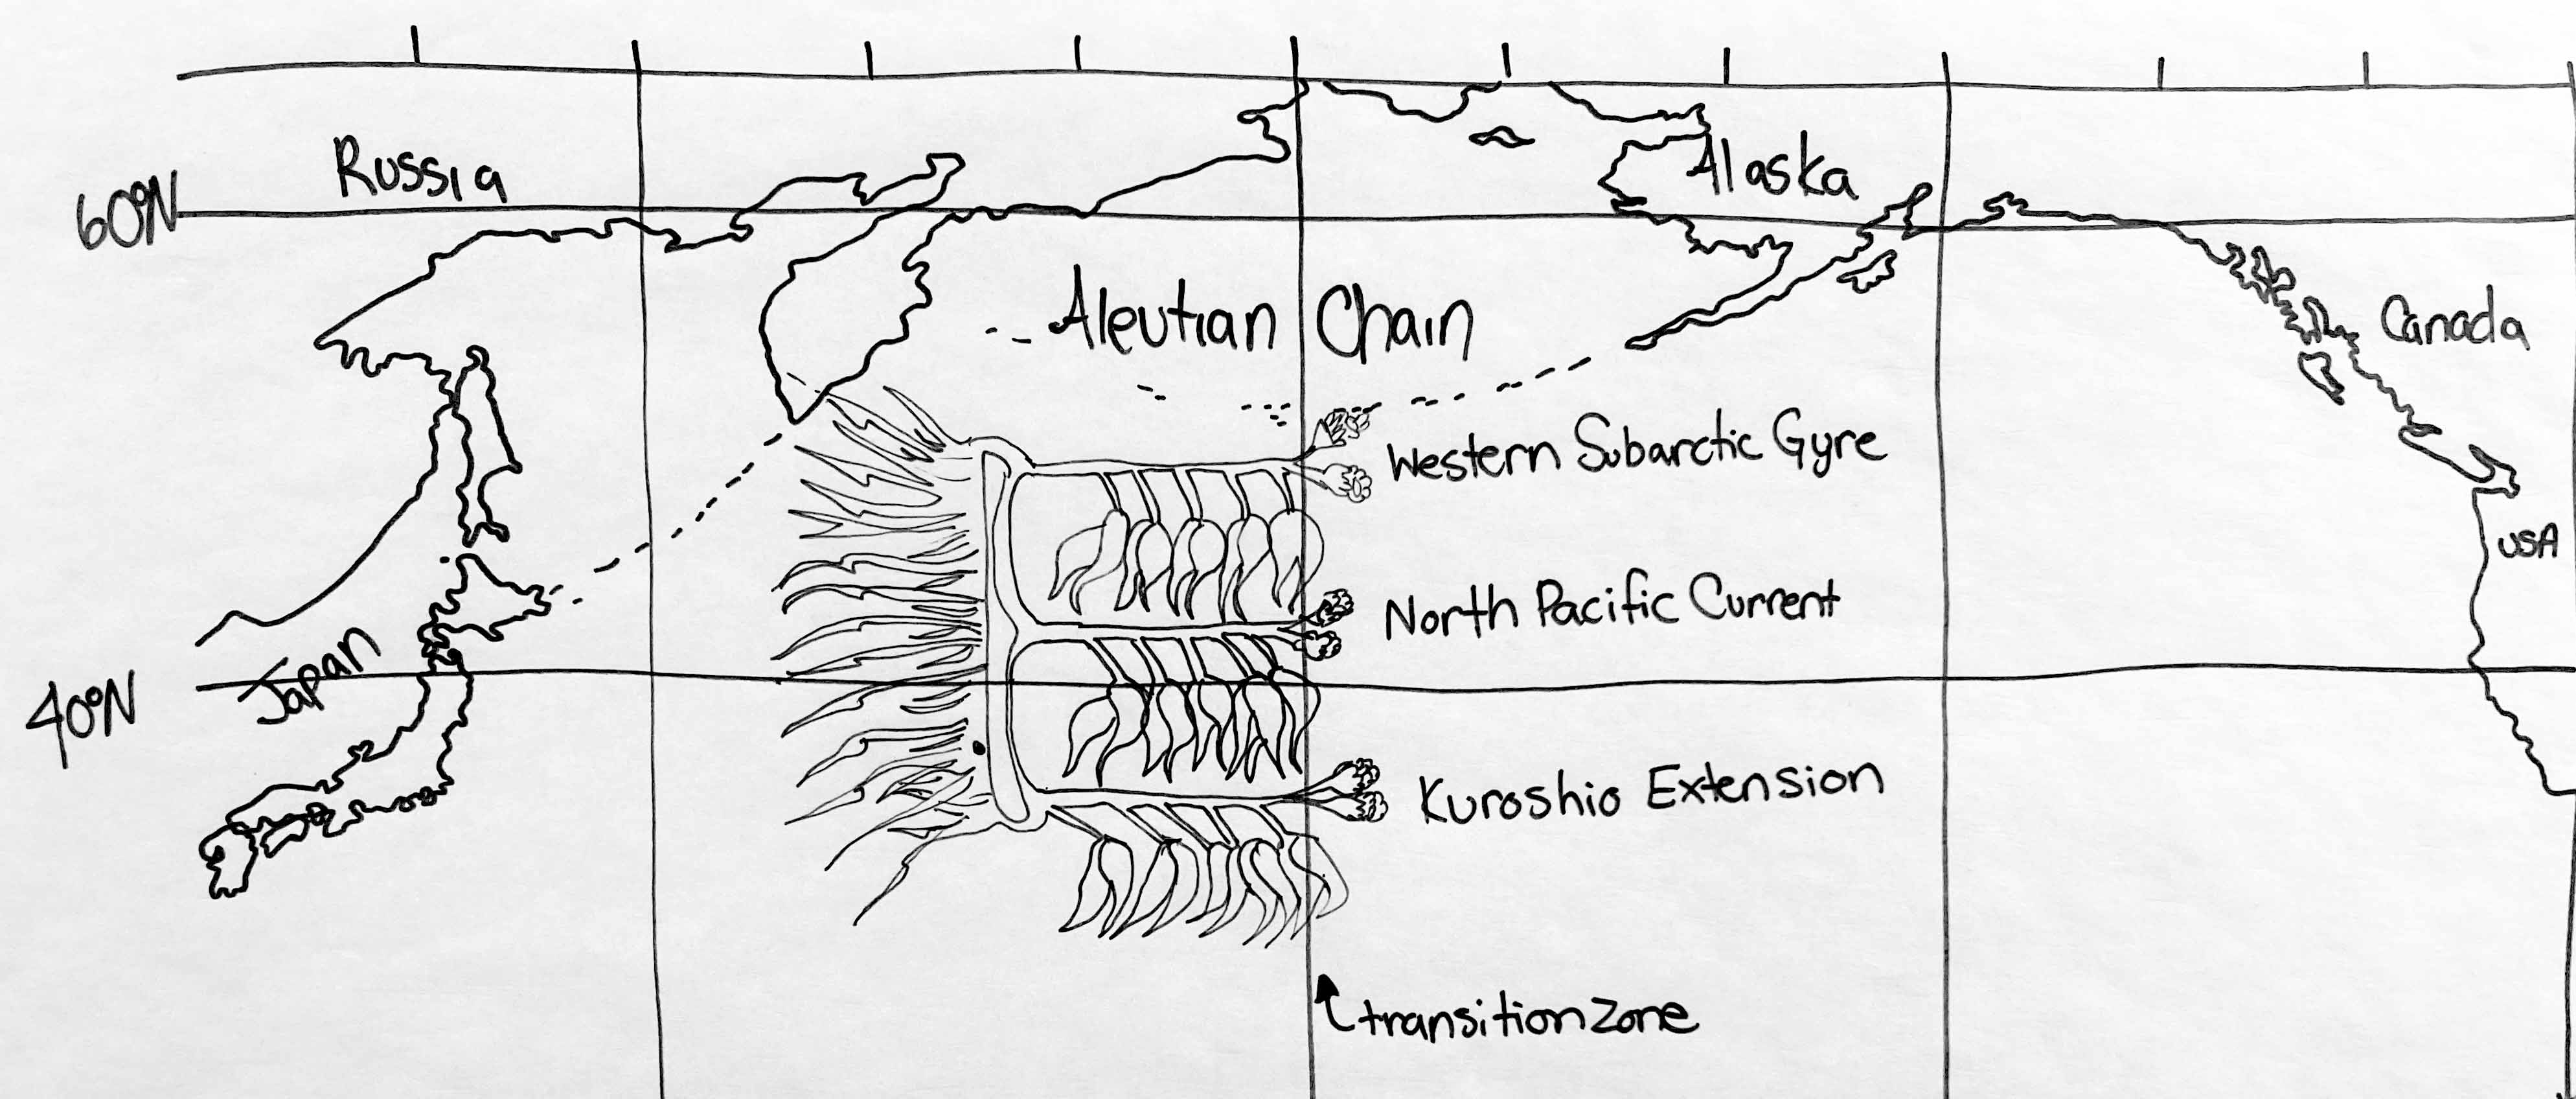 Russia
Alaska
60°N
Aleutian Chain
Canada
Western Subarctic Gyre
USA
North Pacific Current
Japan
40°N
Kuroshio Extension
transition zone